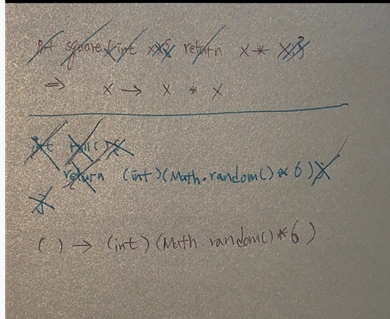 int square(int x){ return x * x;}
⇒ x → x * x
int roll(){
return (int)(Math.random()*6);
}
() → (int)(Math.random()*6)